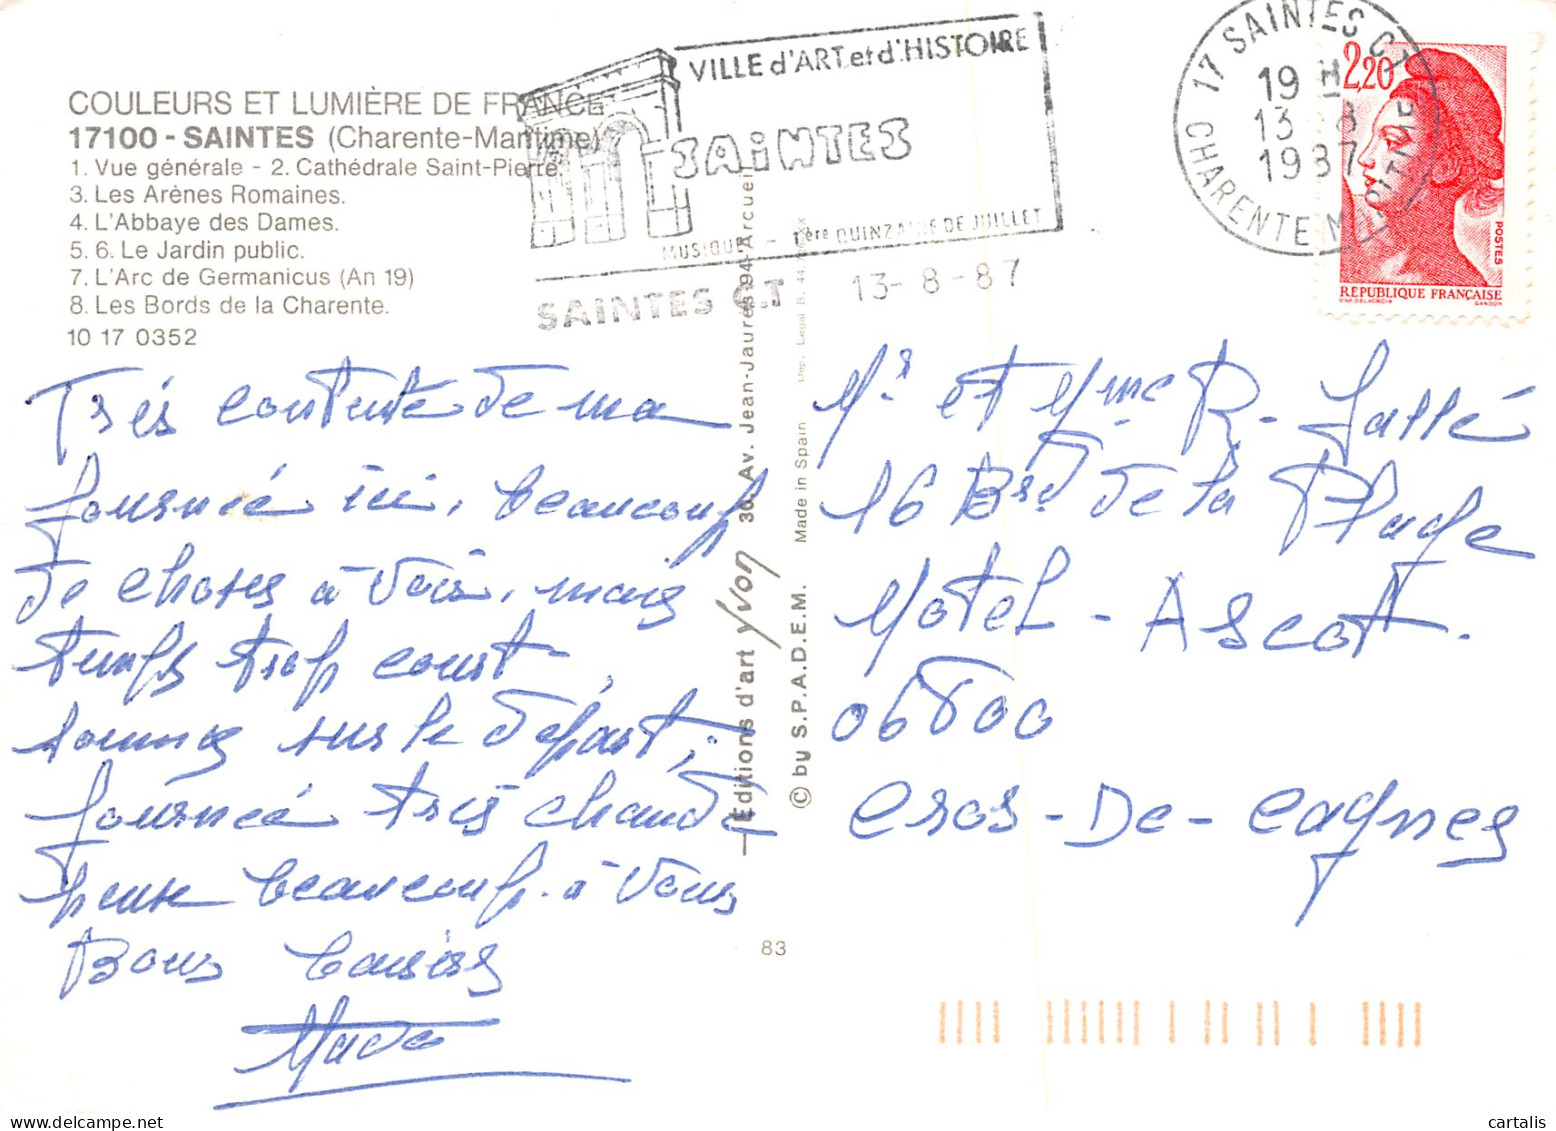 COULEURS ET LUMIÈRE DE FRANCE
17100 - SAINTES (Charente-Maritime)
1. Vue générale - 2. Cathédrale Saint-Pierre.
3. Les Arènes Romaines.
4. L'Abbaye des Dames.
5. 6. Le Jardin public.
7. L'Arc de Germanicus (An 19)
8. Les Bords de la Charente.
10 17 0352
VILLE d'ART et d'HISTOIRE
SAINTES
MUSIQUE - 1ère QUINZAINE DE JUILLET
SAINTES C.T 13-8-87
17 SAINTES CT
19 H
13 - 8
1987
CHARENTE MARITIME
2,20
POSTES
RÉPUBLIQUE FRANÇAISE
D'AP. DELACROIX GANDON
Très contente de ma
journée ici, beaucoup
de choses à voir, mais
temps trop court,
sommes sur le départ,
journée très chaude
pense beaucoup à vous
Bons baisers
Mado
Editions d'art Yvon 30, Av. Jean-Jaurès-94-Arcueil
© by S.P.A.D.E.M. Made in Spain Dép. Légal B. 44
83
Mr et Mme R. Jallé
16 Brd de la Plage
Motel - Ascott.
06800
Cros - De - Cagnes
cartalis